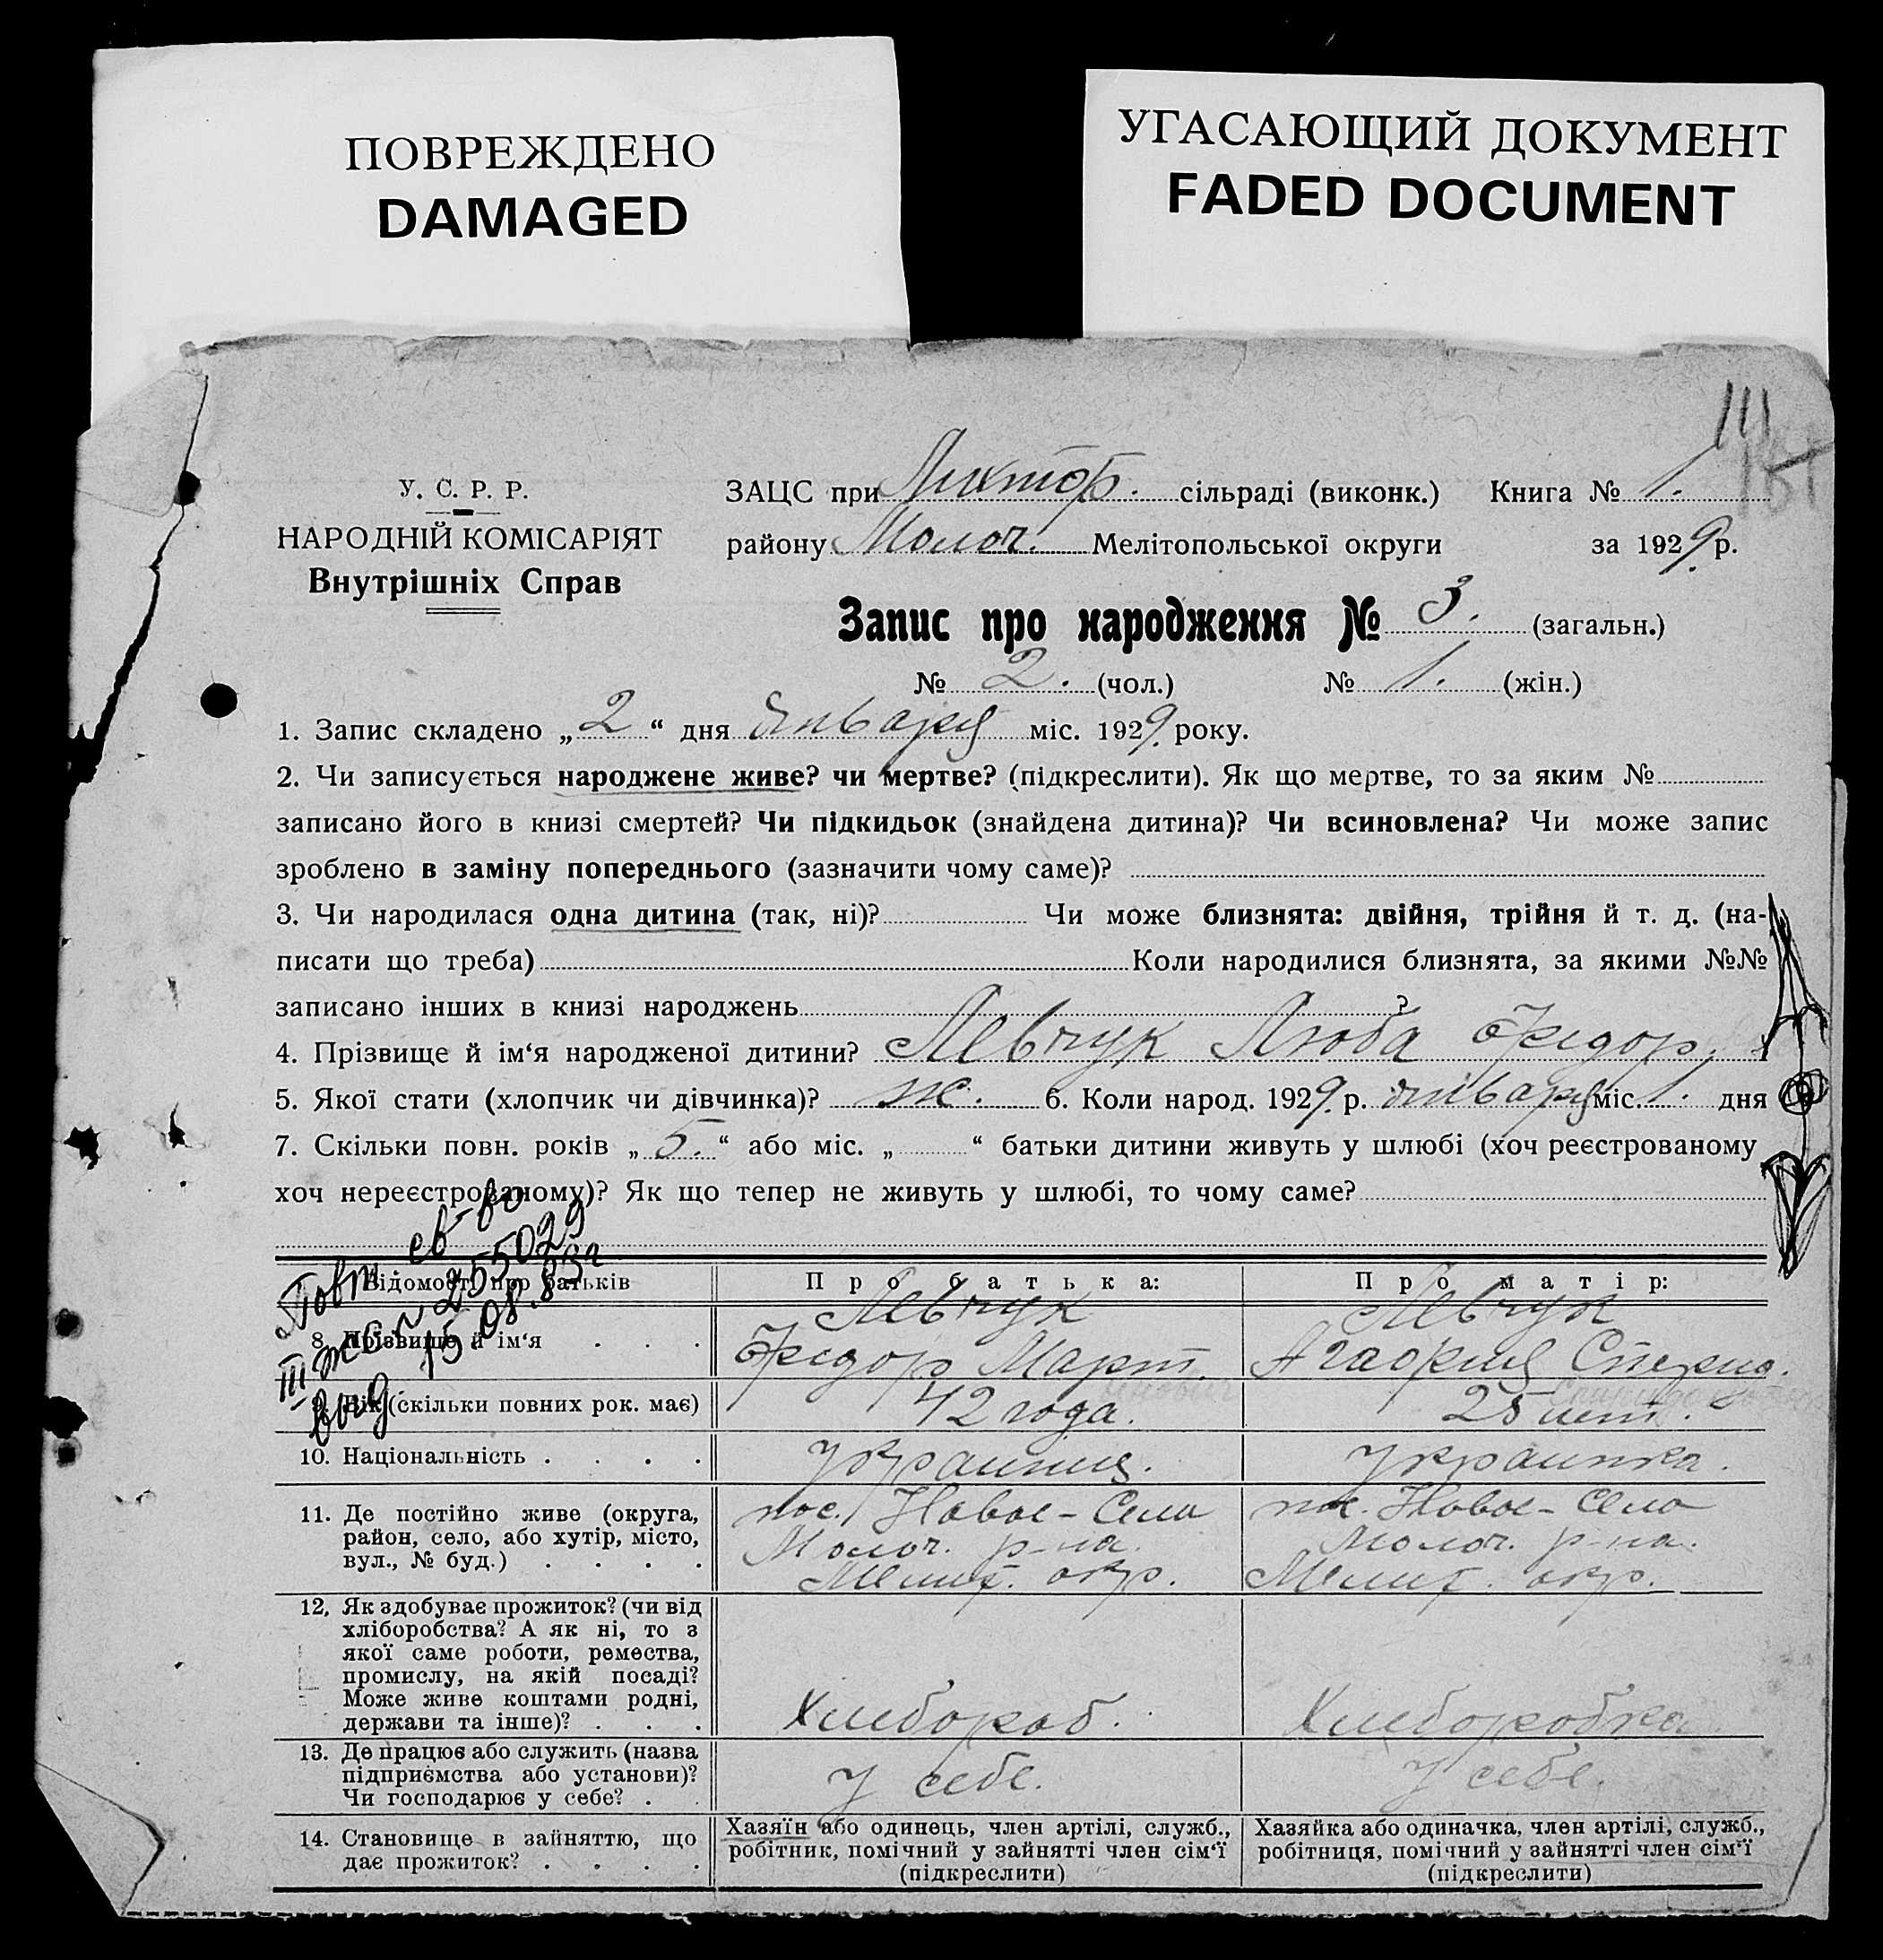 ПОВРЕЖДЕНО
DAMAGED
УГАСАЮЩИЙ ДОКУМЕНТ
FADED DOCUMENT
111
У. С. Р. Р.
НАРОДНІЙ КОМІСАРІЯТ
Внутрішніх Справ
ЗАЦС при Лихтор. сільраді (виконк.) Книга № 1.
району Молоч. Мелітопольської округи за 1929 р.
Запис про народження № 3. (загальн.)
№ 2. (чол.) № 1. (жін.)
1. Запис складено „2“ дня января міс. 1929 року.
2. Чи записується народжене живе? чи мертве? (підкреслити). Як що мертве, то за яким №
записано його в книзі смертей? Чи підкидьок (знайдена дитина)? Чи всиновлена? Чи може запис
зроблено в заміну попереднього (зазначити чому саме)?
3. Чи народилася одна дитина (так, ні)? Чи може близнята: двійня, трійня й т. д. (на-
писати що треба) Коли народилися близнята, за якими №№
записано інших в книзі народжень ?
4. Прізвище й ім‘я народженої дитини? Левчук Люба Федор.
5. Якої стати (хлопчик чи дівчинка)? ж. 6. Коли народ. 1929 р. января міс. 1. дня
7. Скільки повн. років „5.“ або міс. „ “ батьки дитини живуть у шлюбі (хоч реєстрованому
хоч нереєстрованому)? Як що тепер не живуть у шлюбі, то чому саме?
Повт. св-во
III-жс № 255029
выд 15.08.83г
Відомості про батьків
Про батька:
Про матір:
8. Прізвище й ім‘я . . .
Левчук
Федор Март.
Левчук
Агафия Спирид.
9. Вік (скільки повних рок. має)
42 года.
25 лет.
10. Національність . . . .
украинец.
украинка.
11. Де постійно живе (округа,
район, село, або хутір, місто,
вул., № буд.) . . . .
пос. Новое-Село
Молоч. р-на.
Мелит. окр.
пос. Новое-Село
Молоч. р-на.
Мелит. окр.
12. Як здобуває прожиток? (чи від
хліборобства? А як ні, то з
якої саме роботи, ремества,
промислу, на якій посаді?
Може живе коштами родні,
держави та інше)? . . .
Хлебороб.
Хлеборобка
13. Де працює або служить (назва
підприємства або установи)?
Чи господарює у себе? . .
У себе.
У себе.
14. Становище в зайняттю, що
дає прожиток? . . . .
Хазяїн або одинець, член артілі, служб.,
робітник, помічний у зайнятті член сім‘ї
(підкреслити)
Хазяйка або одиначка, член артілі, служб.,
робітниця, помічний у зайнятті член сім‘ї
(підкреслити)